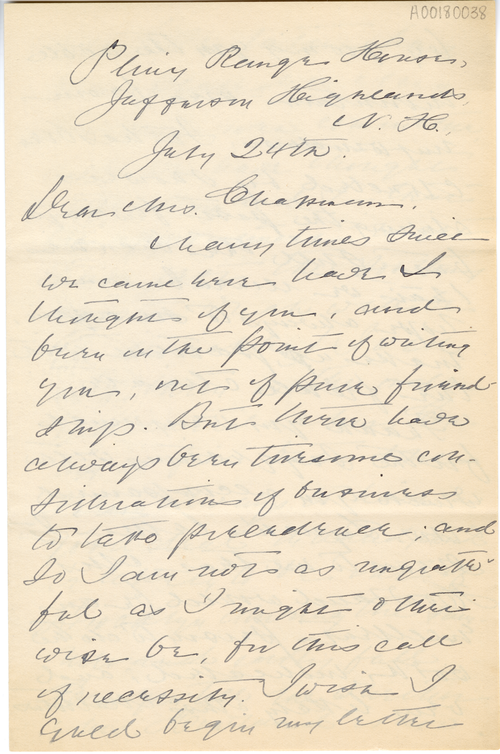 A00180038
Pliny Range House,
Jefferson Highlands,
N. H.,
July 24th.
Dear Mrs. Chapman,
Many times since
we came here have I
thought of you, and
been on the point of writing
you, out of pure friend-
ship. But there have
always been tiresome con-
siderations of business
to take precedence; and
so I am not as ungrate-
ful as I might other-
wise be, for this call
of necessity. I wish I
could begin my letter